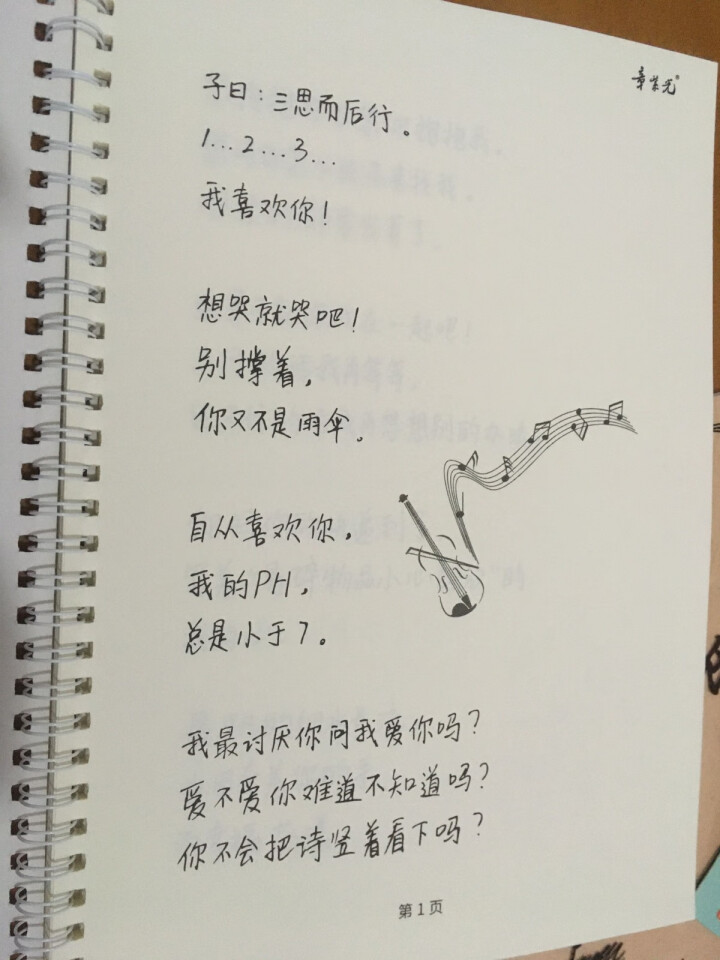 章紫光®
子曰：三思而后行。
1…2…3…
我喜欢你！
想哭就哭吧！
别撑着，
你又不是雨伞。
自从喜欢你，
我的PH，
总是小于7。
我最讨厌你问我爱你吗？
爱不爱你难道不知道吗？
你不会把诗竖着看下吗？
第1页